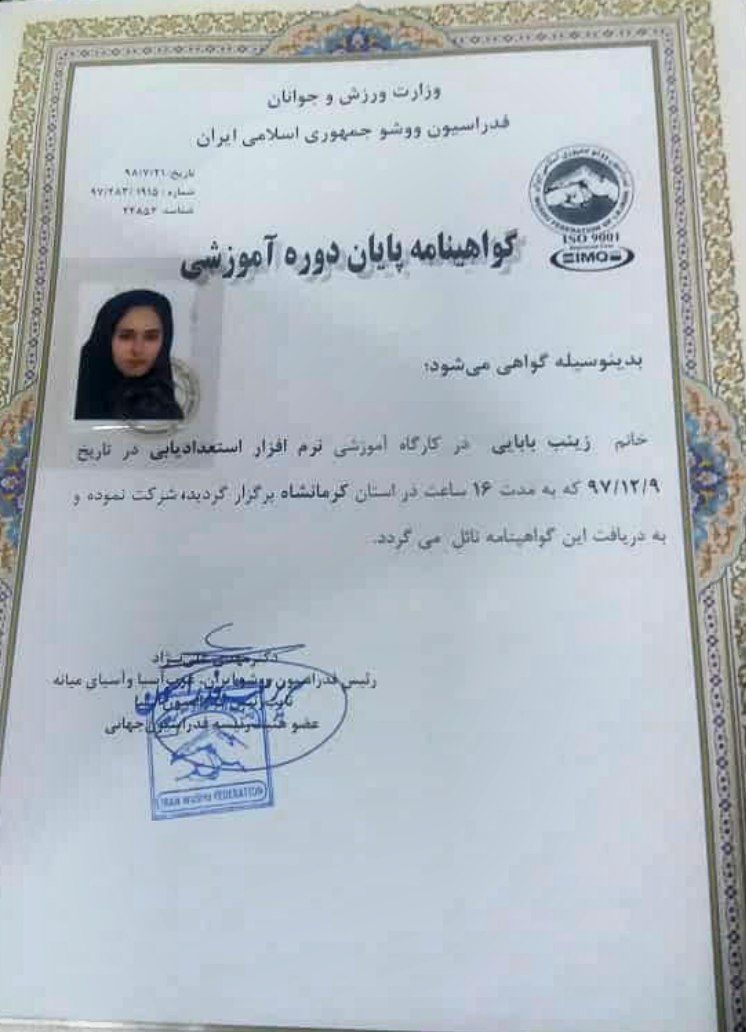 وزارت ورزش و جوانان
فدراسیون ووشو جمهوری اسلامی ایران
تاریخ: ۹۸/۷/۲۱
شماره: ۱۹۱۵/۹۷/۲۸۳
شناسه: ۲۴۸۵۳
ISO 9001
IMQ
گواهینامه پایان دوره آموزشی
بدینوسیله گواهی می‌شود؛
خانم زینب بابایی در کارگاه آموزشی نرم افزار استعدادیابی در تاریخ
۹۷/۱۲/۹ که به مدت ۱۶ ساعت در استان کرمانشاه برگزار گردید، شرکت نموده و
به دریافت این گواهینامه نائل می گردد.
دکتر مهدی علی‌نژاد
رئیس فدراسیون ووشو ایران، غرب آسیا و آسیای میانه
نایب رئیس فدراسیون آسیا
عضو هیئت رئیسه فدراسیون جهانی
IRAN WUSHU FEDERATION